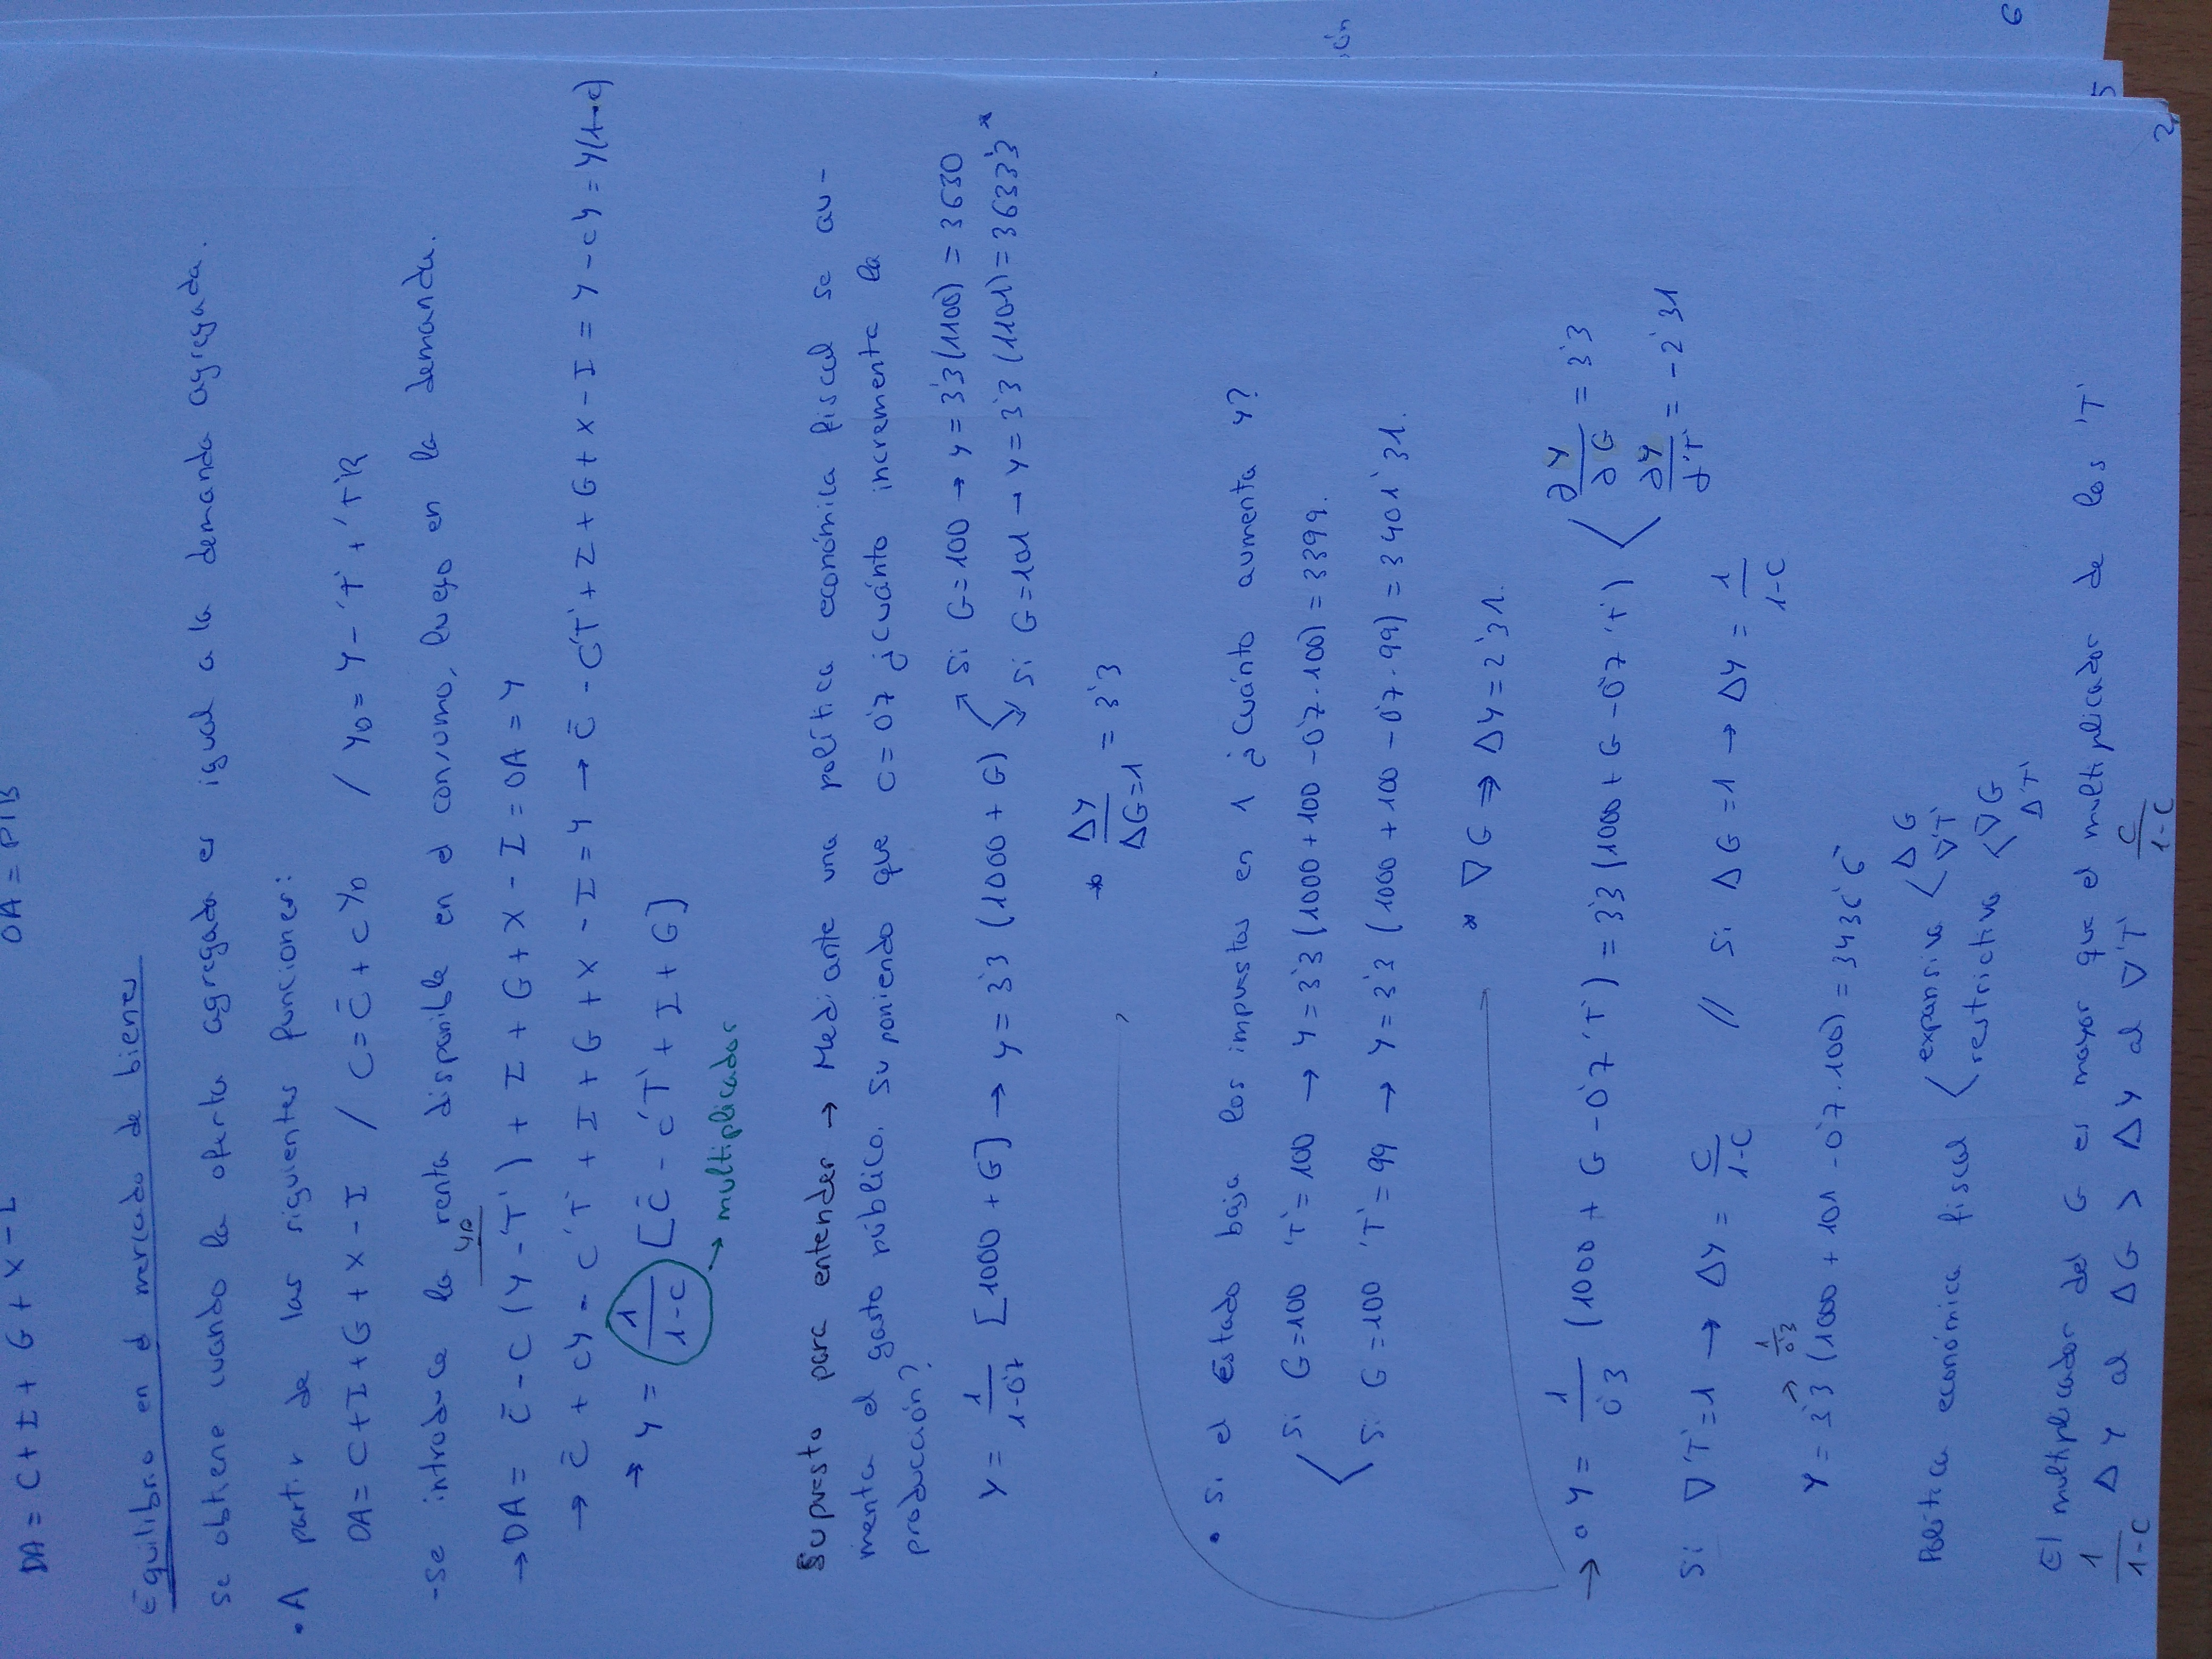 DA = C + I + G + X - I OA = PIB
Equilibrio en el mercado de bienes
Se obtiene cuando la oferta agregada es igual a la demanda agregada.
• A partir de las siguientes funciones:
DA = C + I + G + X - I / C = C̄ + cYD / YD = Y - 'T' + 'TR
- Se introduce la renta disponible en el consumo, luego en la demanda.
YD
→ DA = C̄ - C (Y - 'T') + I + G + X - I = OA = Y
→ C̄ + cY - c'T' + I + G + X - I = Y → C̄ - C'T' + I + G + X - I = Y - cY = Y(1-c)
→ Y = 1/(1-c) [C̄ - c'T' + I + G]
→ multiplicador
Supuesto para entender → Mediante una política económica fiscal se au-
menta el gasto público. Suponiendo que C = 0'7 ¿cuánto incrementa la
producción?
Si G = 100 → Y = 3'3 (1100) = 3630
Y = 1/(1-0'7) [1000 + G] → Y = 3'3 (1000 + G)
Si G = 101 → Y = 3'3 (1101) = 3633'3 *
* ΔY/ΔG=1 = 3'3
• Si el Estado baja los impuestos en 1 ¿cuánto aumenta Y?
Si G = 100 'T' = 100 → Y = 3'3 (1000 + 100 - 0'7 · 100) = 3399.
Si G = 100 'T' = 99 → Y = 3'3 (1000 + 100 - 0'7 · 99) = 3401'31.
* ∇G ⇒ ΔY = 2'31.
→ • Y = 1/0'3 (1000 + G - 0'7 'T') = 3'3 (1000 + G - 0'7 'T') ∂Y/∂G = 3'3
∂Y/∂'T' = -2'31
Si ∇'T' = 1 → ΔY = C/(1-C) // Si ΔG = 1 → ΔY = 1/(1-C)
→ 1/0'3
Y = 3'3 (1000 + 101 - 0'7 · 100) = 3436'6
Política económica fiscal expansiva ΔG ∇'T'
restrictiva ∇G Δ'T'
El multiplicador del G es mayor que el multiplicador de los 'T'
1/(1-C) ΔY al ΔG > ΔY al ∇'T' C/(1-C)
2
5
6
ión